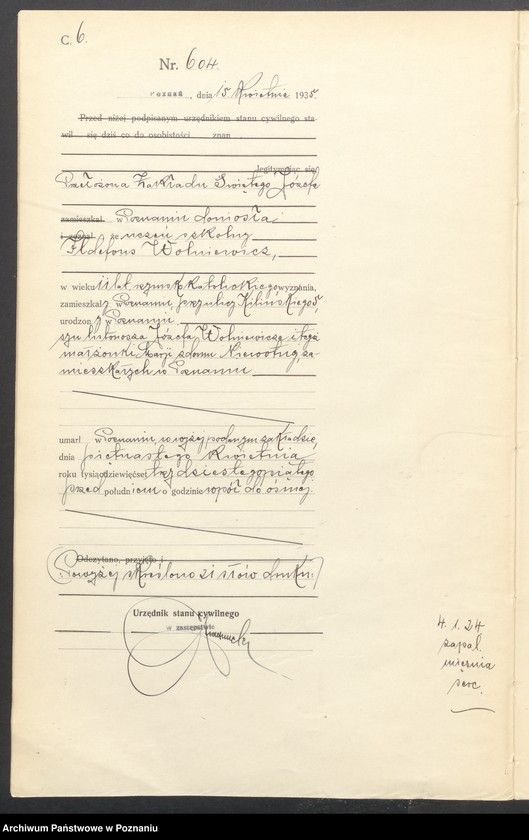 C. 6.
Nr. 604.
Poznań, dnia 15 Kwietnia 1935.
Przed niżej podpisanym urzędnikiem stanu cywilnego sta-
wił się dziś co do osobistości znan
legitymując się
Przełożona Zakładu Świętego Józefa
zamieszkał w Poznaniu doniosła
że uczeń szkolny
Ildefons Wolniewicz,
w wieku 11 lat, rzymskokatolickiego wyznania,
zamieszkał w Poznaniu, przy ulicy Kilińskiego 5,
urodzony w Poznaniu
syn listonosza Józefa Wolniewicza i tegoż
małżonki Marji z domu, za-
mieszkałych w Poznaniu
umarł w Poznaniu, w wyżej podanym zakładzie,
dnia piętnastego Kwietnia
roku tysiąc dziewięćset trzydziestego piątego
przed południem o godzinie wpół do ósmej.
Odczytano, przyjęto i
Powyżej skreślono 21 słów druku.
Urzędnik stanu cywilnego
w zastępstwie
4. 1. 24
zapal.
mięśnia
serc.
Archiwum Państwowe w Poznaniu